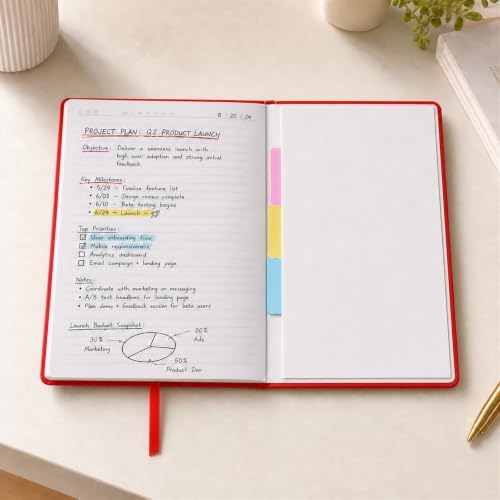 5 / 20 / 24
PROJECT PLAN: Q2 PRODUCT LAUNCH
Objective: Deliver a seamless launch with
high user adoption and strong initial
feedback.
Key Milestones:
• 5/29 - Finalize feature list
• 6/02 - Design review complete
• 6/10 - Beta testing begins
• 6/24 - Launch -
Top Priorities:
☑ User onboarding flow
☑ Mobile responsiveness
☐ Analytics dashboard
☐ Email campaign + landing page
Notes:
• Coordinate with marketing on messaging
• A/B test headlines for landing page
• Plan demo + feedback session for beta users
Launch Budget Snapshot:
30% Marketing
20% Ads
50% Product Dev